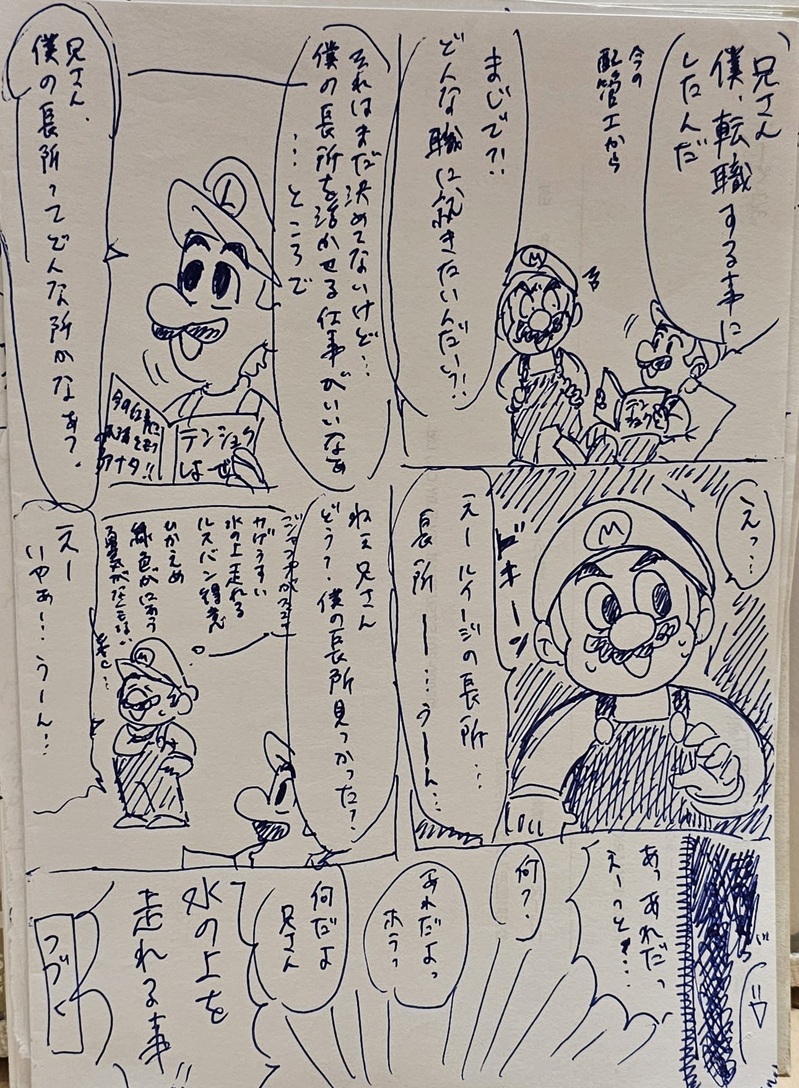 兄さん
僕、転職する事に
したんだ
今の
配管工から
まじで?!
どんな職に就きたいんだい?!
M
テン
ショク
それはまだ決めてないけど…
僕の長所を活かせる仕事がいいなぁ
…ところで
L
テンショク
しよーぜ
アナタ!!
兄さん、
僕の長所ってどんな所かなぁ?
えっ…
M
ドキーン
えールイージの長所…
長所ー…うーん…
ねぇ兄さん
どう?僕の長所見つかった?
かげうすい
水の上走れる
ルスバン得意
ひかえめ
緑色がにあう
勇気がなくもない
M
えー
いやぁー…うーん…
あっあれだっ
えーっと…
何?
あれだよっ
ホラっ
何だよ
兄さん
水の上を
走れる事
!!
つづく